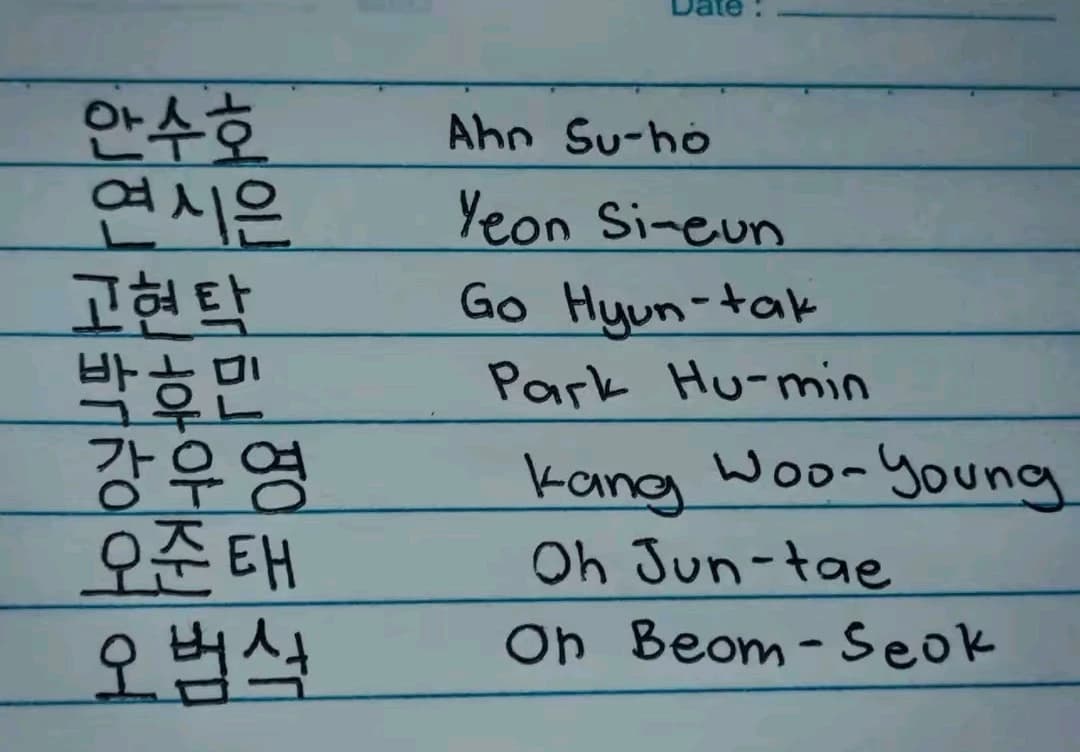 Date :
안수호 Ahn Su-ho
연시은 Yeon Si-eun
고현탁 Go Hyun-tak
박후민 Park Hu-min
강우영 Kang Woo-Young
오준태 Oh Jun-tae
오범석 Oh Beom-Seok